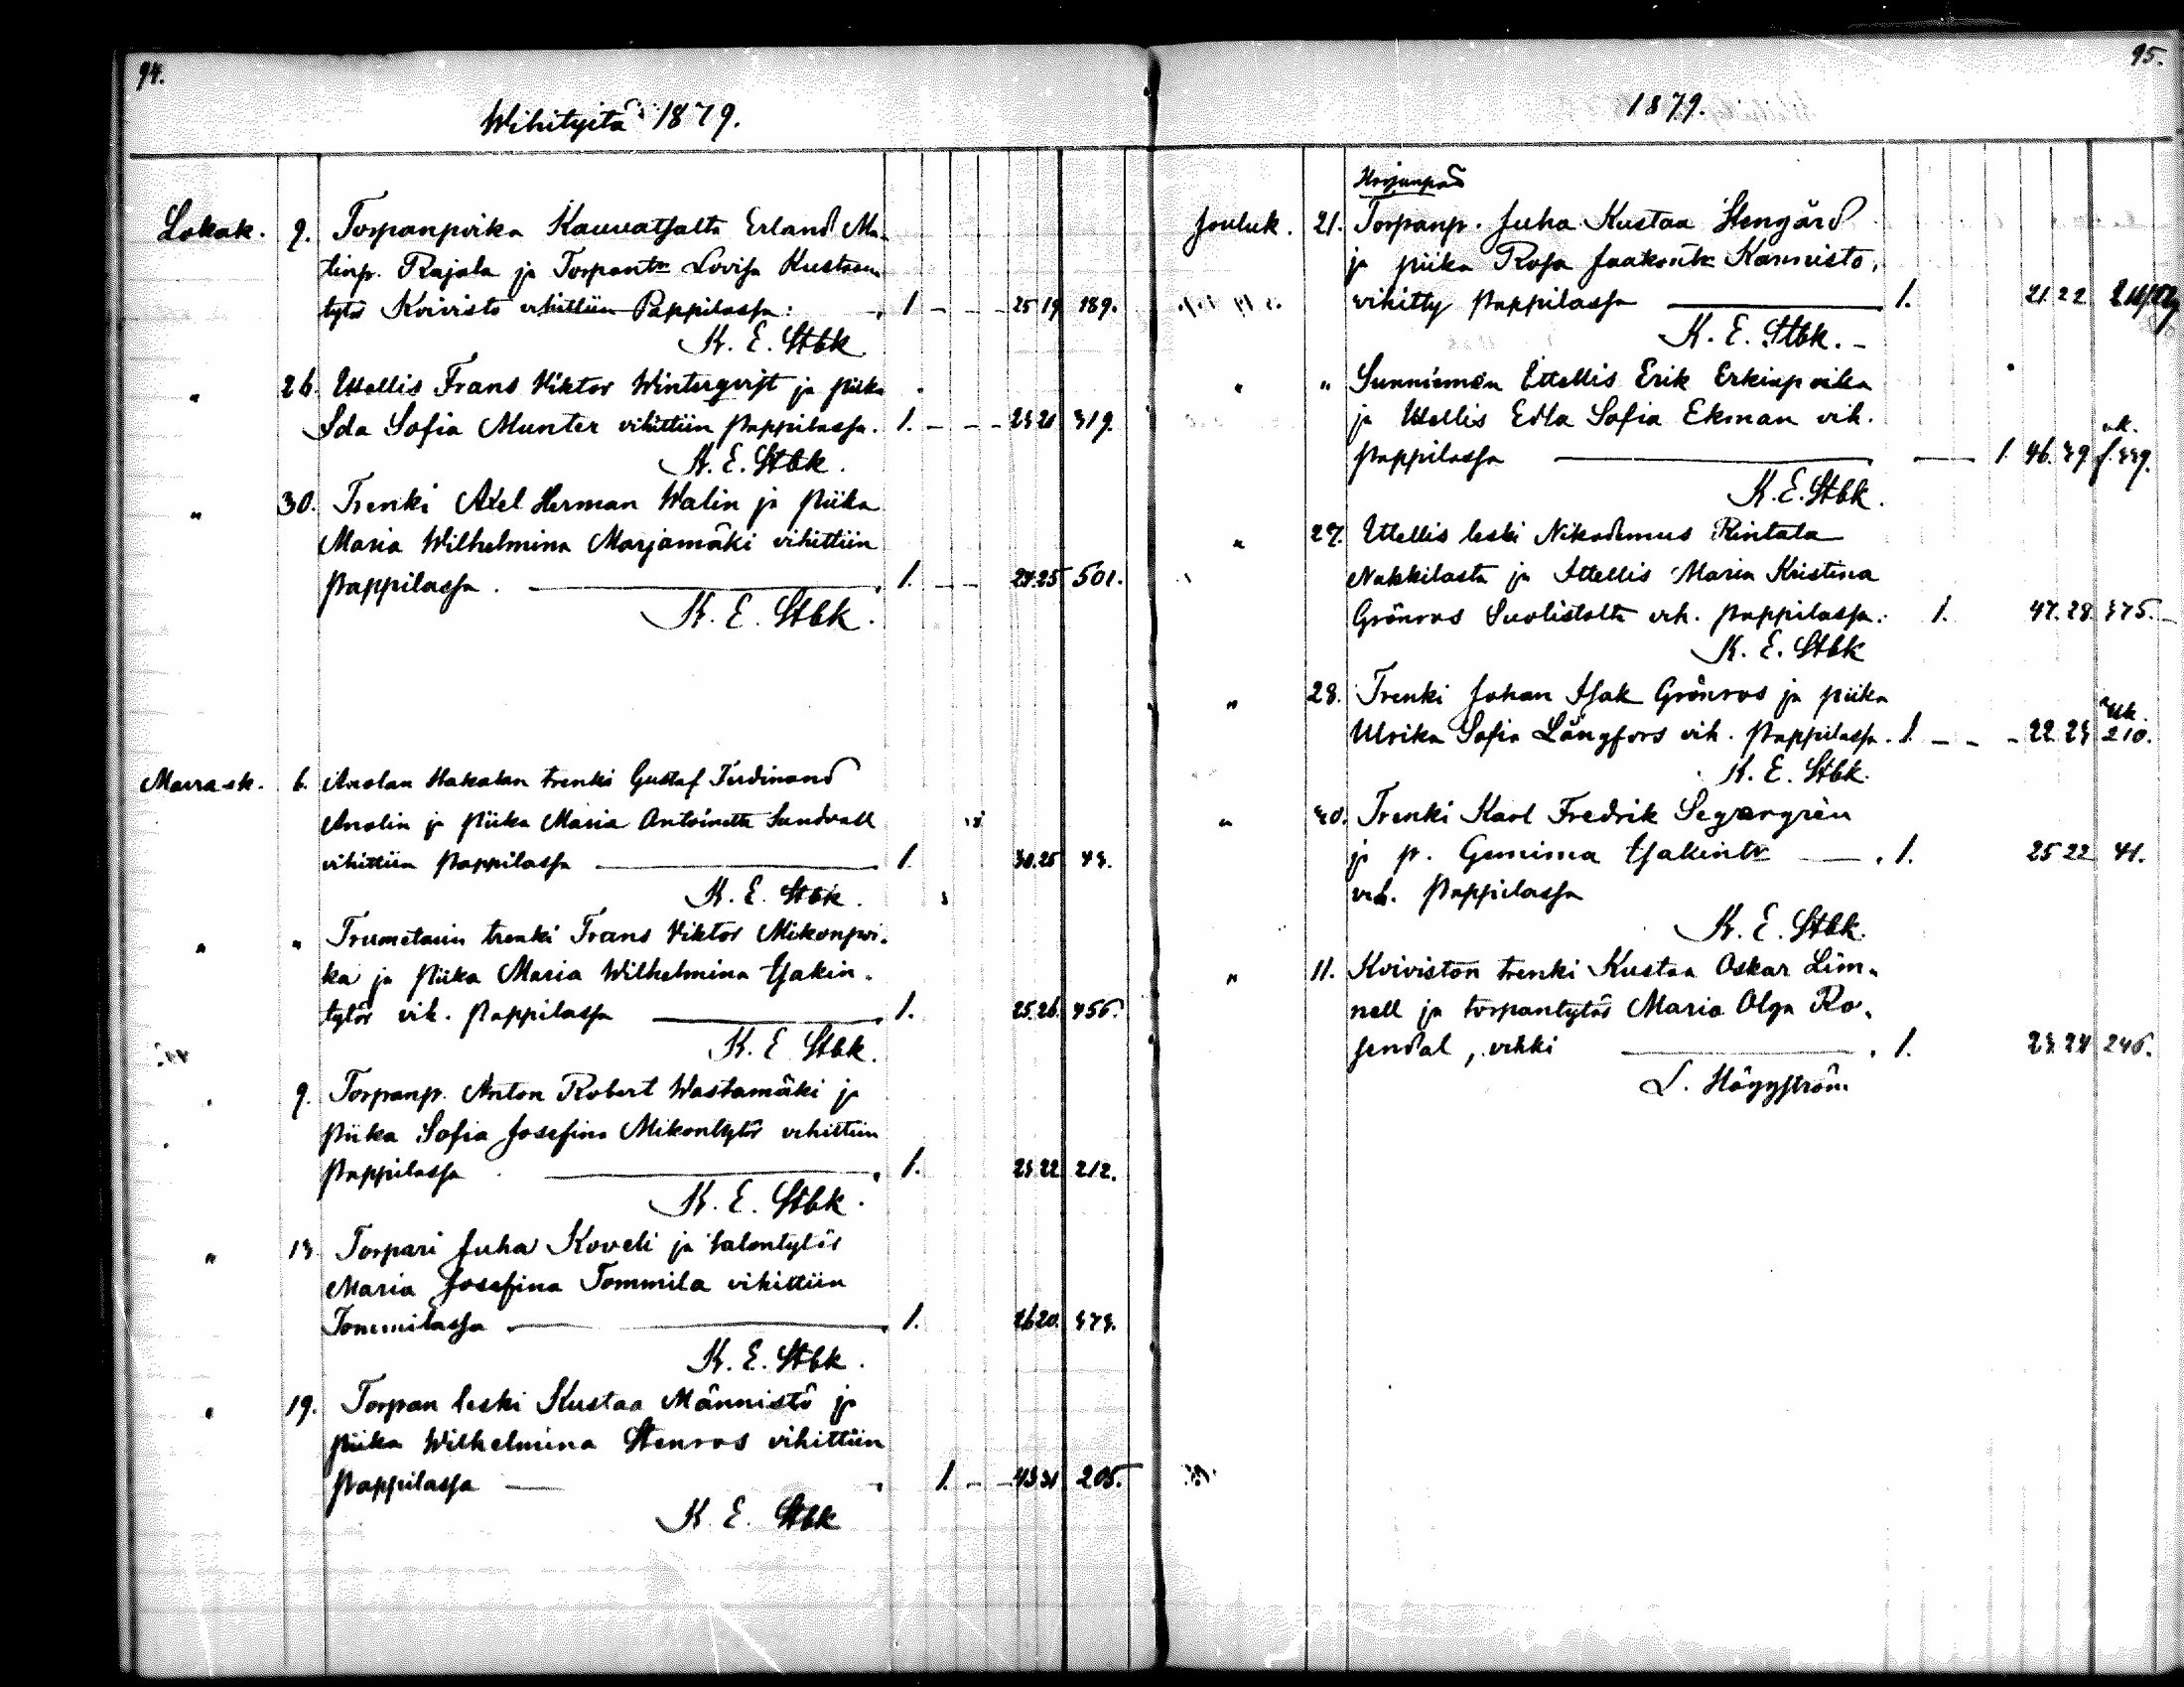 94.
Wihityitä 1879.
Lokak. 9. Torpanpoika Kauvatsalta Erland Ma-
tinp. Rajala ja Torpantr Lovisa Kustaan
tytär Koivisto vihittiin Pappilassa: 1 - - - 25 19 189.
K. E. Stbk.
" 26. Ittellis Frans Viktor Wintergvist ja piika
Ida Sofia Munter vihittiin Pappilassa. 1. - - - 23 21 319.
K. E. Stbk.
" 30. Trenki Axel Herman Walin ja Piika
Maria Wilhelmina Marjamäki vihittiin
Pappilassa. 1. - - 24. 25 501.
K. E. Stbk.
Marrask. 6. Anolan Hakalan trenki Gustaf Ferdinand
Anolin ja Piika Maria Antoinetta Sundvall
vihittiin Pappilassa 1. 30. 25 43.
K. E. Stbk.
" " trenki Frans Viktor Mikonpoi-
ka ja Piika Maria Wilhelmina Isakin-
tytär vih. Pappilassa 1. 25. 26. 456.
K. E Stbk.
" 9. Torpanp. Anton Robert Wastamäki ja
Piika Sofia Josefina Mikontytär vihittiin
Pappilassa 1. 23 22 212.
K. E. Stbk.
" 13. Torpari Juha Koveli ja talontytär
Maria Josefina Tommila vihittiin
Tommilassa 1. 26 20. 373.
K. E. Stbk.
" 19. Torpan leski Kustaa Männistö ja
piika Wilhelmina Stenros vihittiin
Pappilassa 1. - - 43 31 205.
K. E. Stbk
95.
1879.
Harjanpää
Jouluk. 21. Torpanp. Juha Kustaa Stengård
ja piika Rosa Jaakontr Kannisto,
vihitty Pappilassa 1. 21. 22
K. E. Stbk. -
" " Sunniemen Ittellis Erik Erkinpoika
ja Ittellis Edla Sofia Ekman vih.
Pappilassa 1 46. 39 f. 339.
K. E. Stbk.
" 27. Ittellis leski Nikodemus Rintala
Nakkilasta ja Ittellis Maria Kristina
Grönros Suolistolta vih. Pappilassa. 1. 47. 28. 375.
K. E. Stbk
" 28. Trenki Johan Isak Grönros ja piika
Ulrika Sofia Långfors vih. Pappilassa. 1 - - - 22 23 210.
K. E. Stbk.
" 30. Trenki Karl Fredrik Segergrén
ja p. Gemima Isakintr 1. 25 22 41.
vih. Pappilassa
K. E. Stbk.
" 11. Koiviston trenki Kustaa Oskar Lim-
nell ja torpantytär Maria Olga Ro-
sendal, vihki 1. 23. 24 246.
L. Häggström